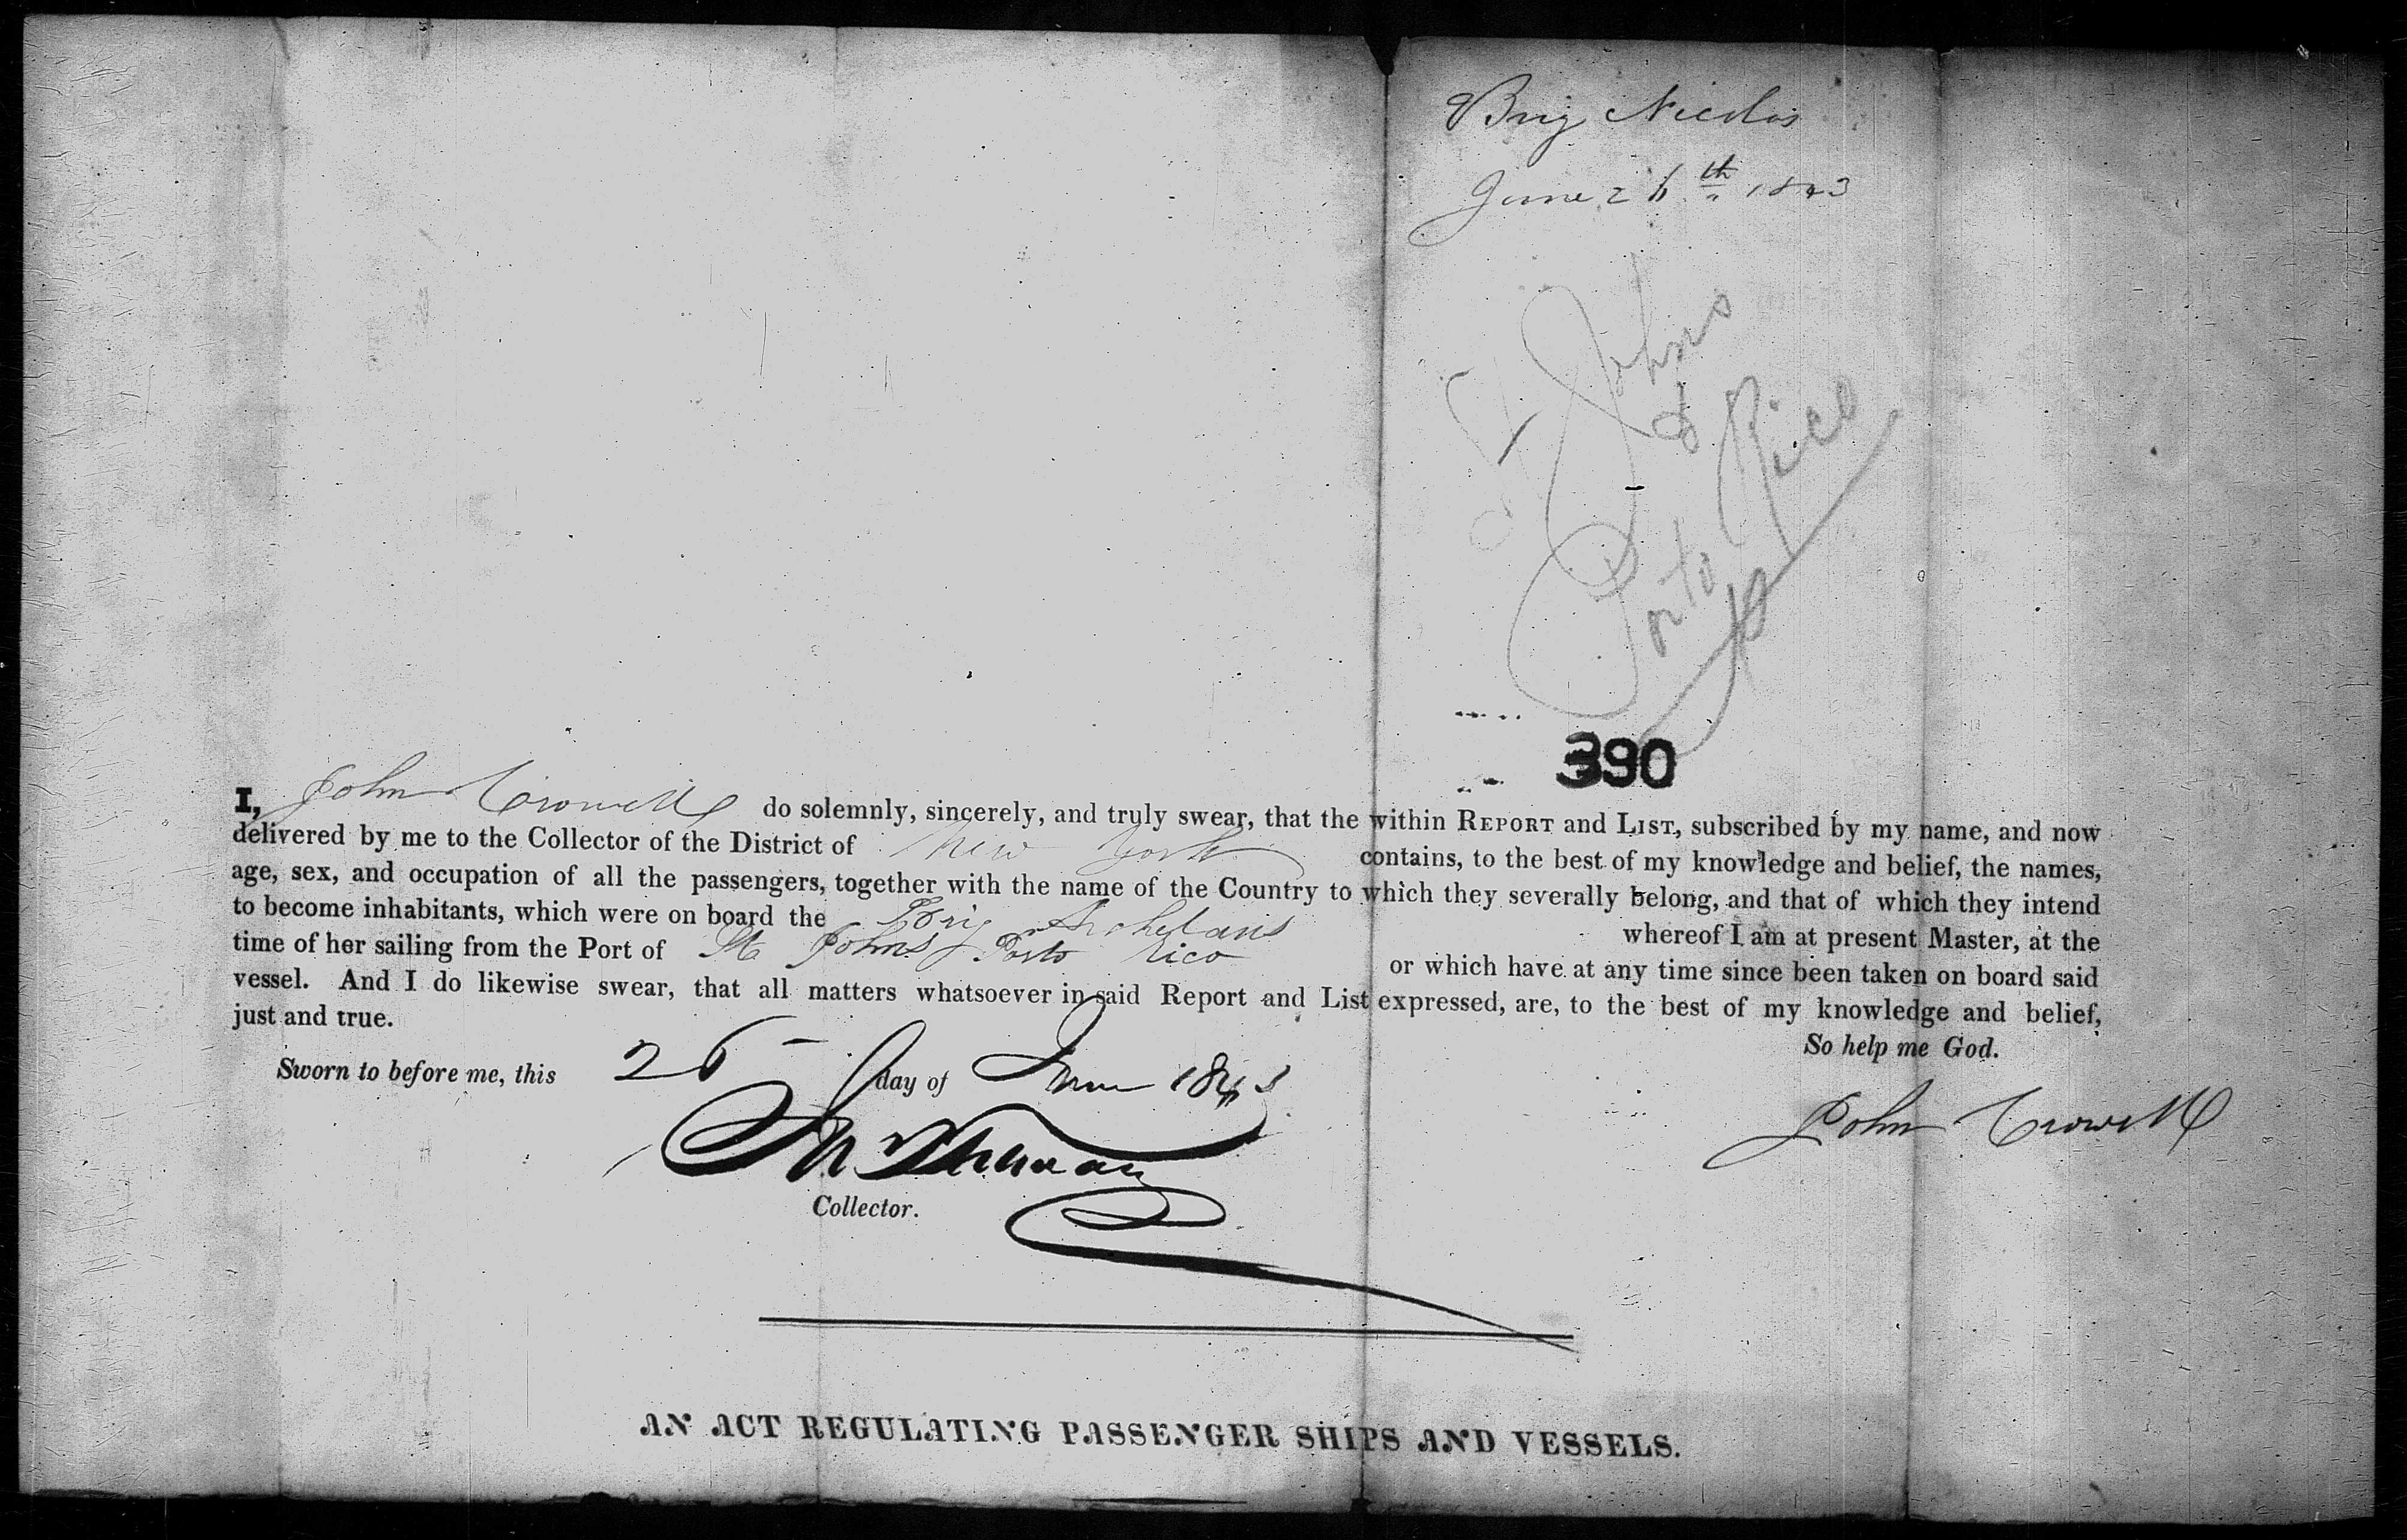 Brig Nicolas
June 26th 1843
St Johns
&
Porto Rico
390
I, John Crowell do solemnly, sincerely, and truly swear, that the within REPORT and LIST, subscribed by my name, and now
delivered by me to the Collector of the District of New York contains, to the best of my knowledge and belief, the names,
age, sex, and occupation of all the passengers, together with the name of the Country to which they severally belong, and that of which they intend
to become inhabitants, which were on board the Brig Archelaus whereof I am at present Master, at the
time of her sailing from the Port of St Johns Porto Rico or which have at any time since been taken on board said
vessel. And I do likewise swear, that all matters whatsoever in said Report and List expressed, are, to the best of my knowledge and belief,
just and true.
So help me God.
Sworn to before me, this 26 day of June 1843
John Crowell
Collector.
AN ACT REGULATING PASSENGER SHIPS AND VESSELS.